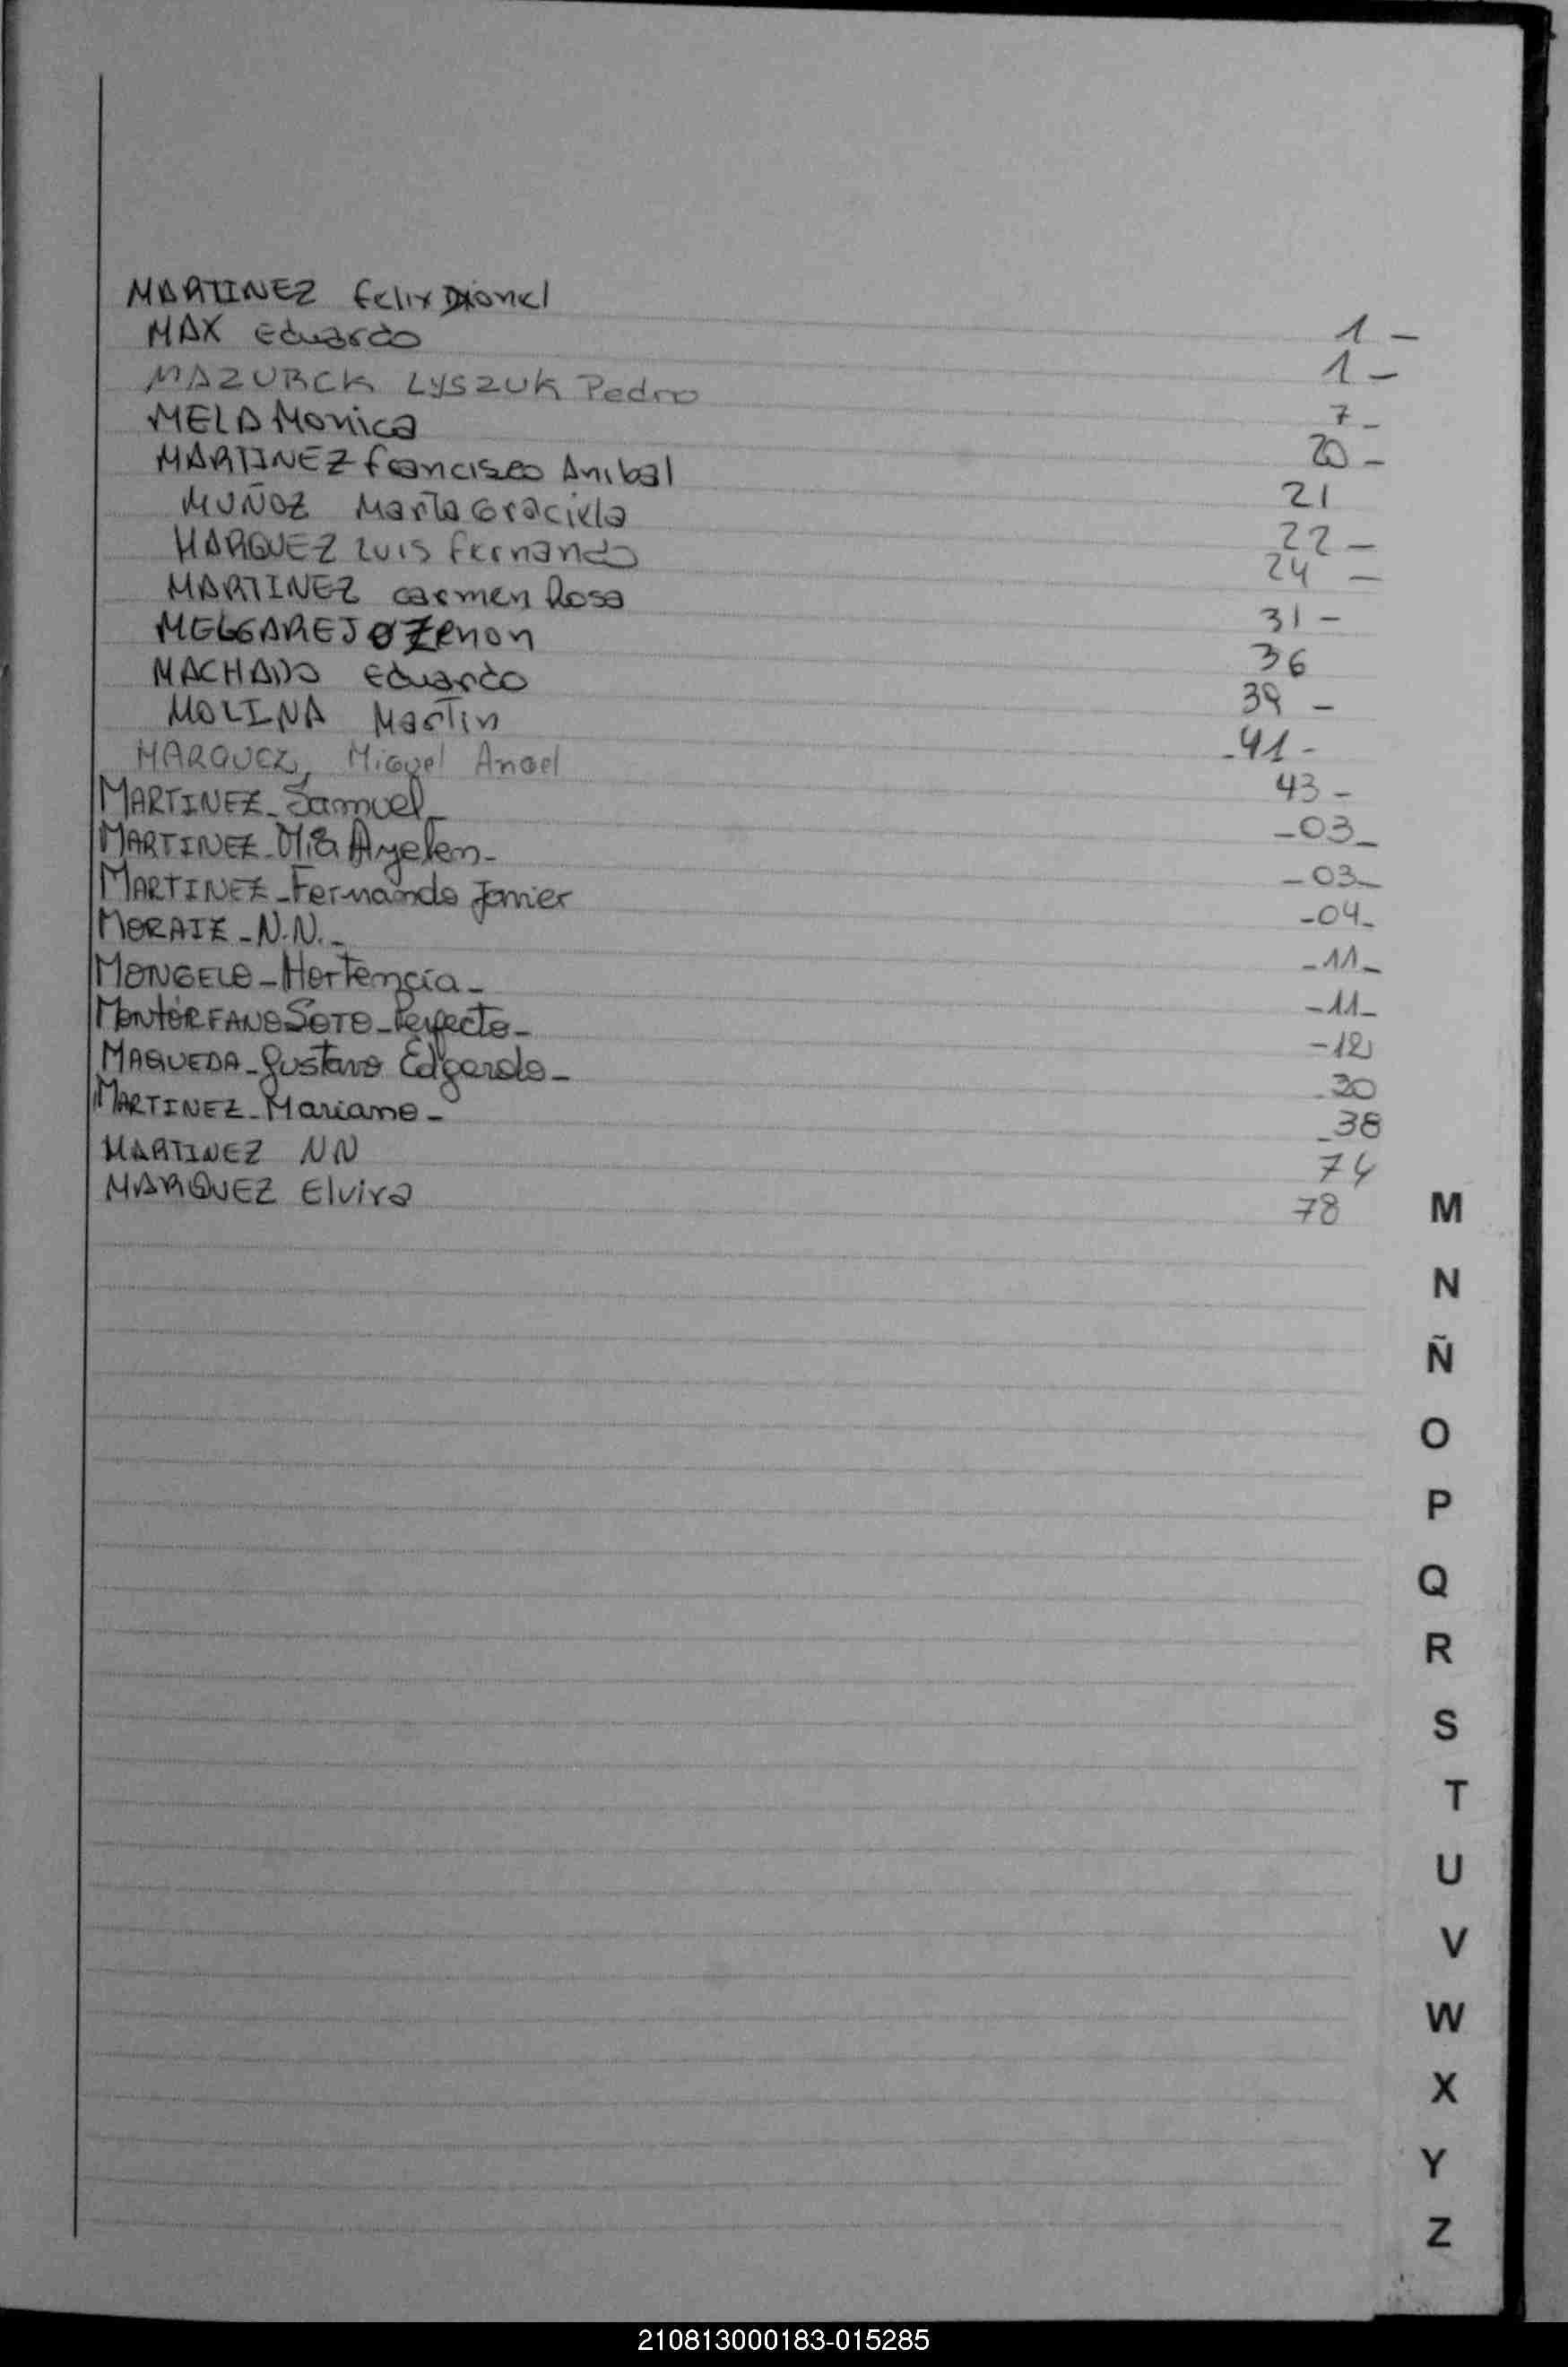 MARTINEZ Felix Dionel 1 -
MAX Eduardo 1 -
MAZURCK LYSZUK Pedro 7 -
MELA Monica 20 -
MARTINEZ Francisco Anibal 21
MUÑOZ Marta Graciela 22 -
MARQUEZ Luis Fernando 24 -
MARTINEZ Carmen Rosa 31 -
MELGAREJO Zenon 36
MACHADO Eduardo 39 -
MOLINA Martin - 41 -
MARQUEZ, Miguel Angel 43 -
MARTINEZ - Samuel - - 03 -
MARTINEZ - Mia Ayelen - - 03 -
MARTINEZ - Fernando Javier - 04 -
MORAIZ - N.N. - - 11 -
MONGELO - Hortencia - - 11 -
MONTORFANO SOTO - Perfecto - - 12
MAQUEDA - Gustavo Edgardo - - 30
MARTINEZ - Mariano - - 38
MARTINEZ NN 74
MARQUEZ Elvira 78
M
N
Ñ
O
P
Q
R
S
T
U
V
W
X
Y
Z
210813000183-015285